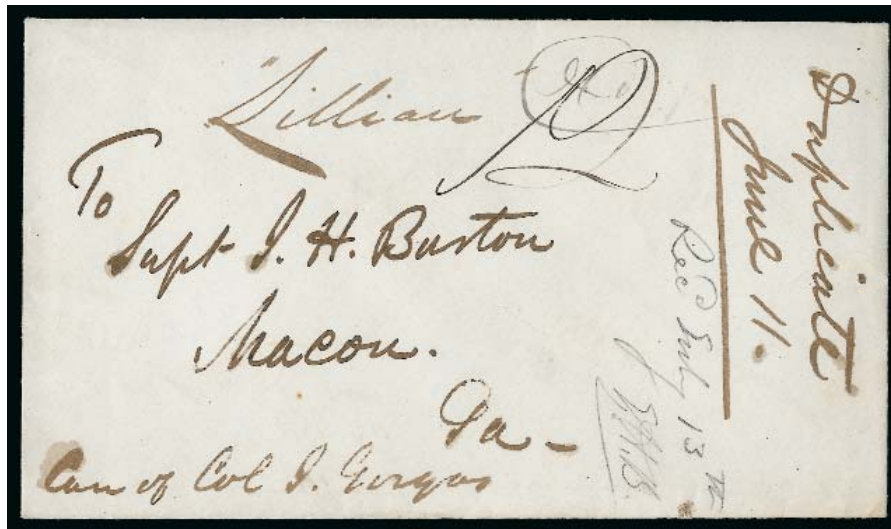 "Lillian
12
To
Supt J. H. Burton
Macon.
Ga -
Care of Col J. Gorgas
Duplicate
June 11.
Recd July 13th
JHB.